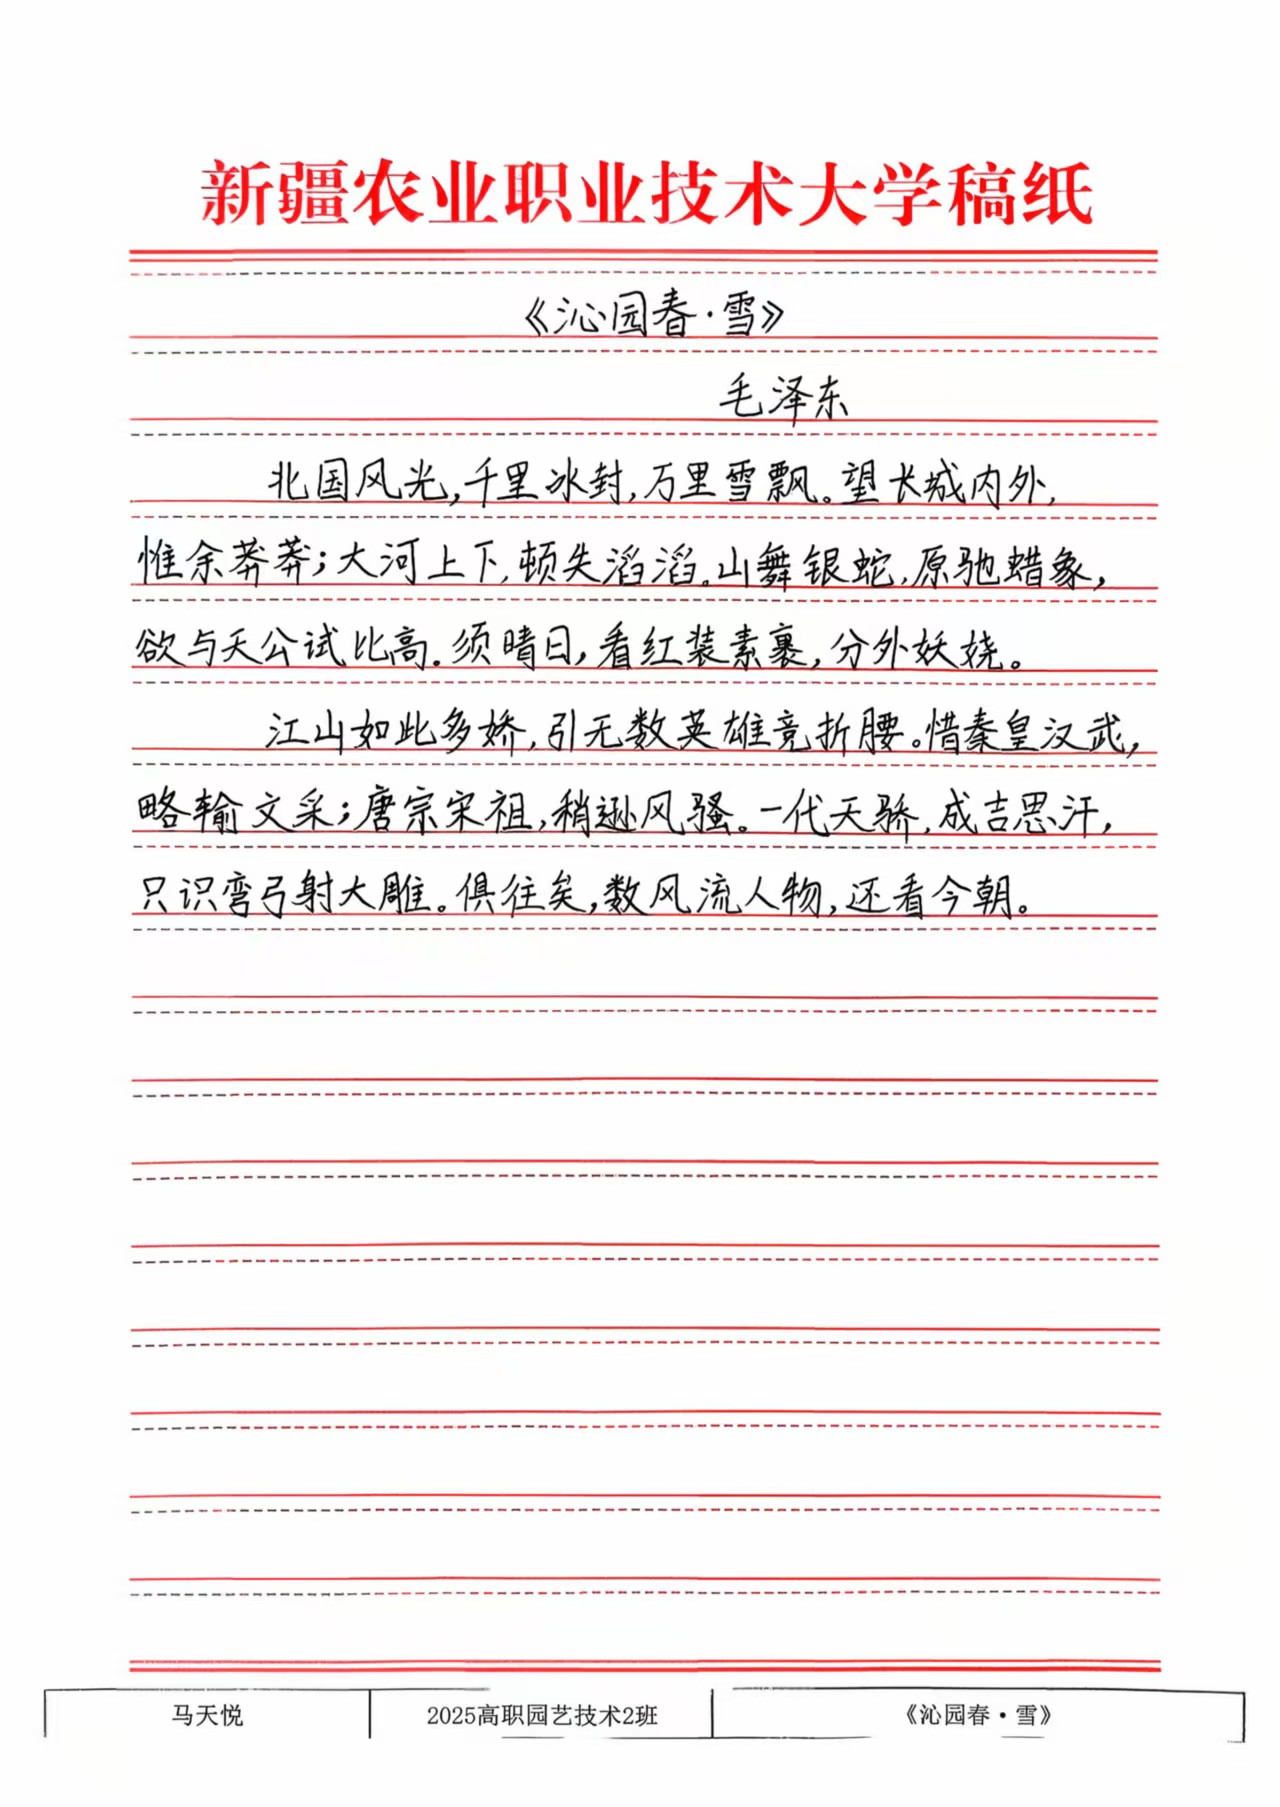 新疆农业职业技术大学稿纸
《沁园春·雪》
毛泽东
北国风光,千里冰封,万里雪飘。望长城内外,
惟余莽莽;大河上下,顿失滔滔。山舞银蛇,原驰蜡象,
欲与天公试比高。须晴日,看红装素裹,分外妖娆。
江山如此多娇,引无数英雄竞折腰。惜秦皇汉武,
略输文采;唐宗宋祖,稍逊风骚。一代天骄,成吉思汗,
只识弯弓射大雕。俱往矣,数风流人物,还看今朝。
马天悦 2025高职园艺技术2班 《沁园春·雪》